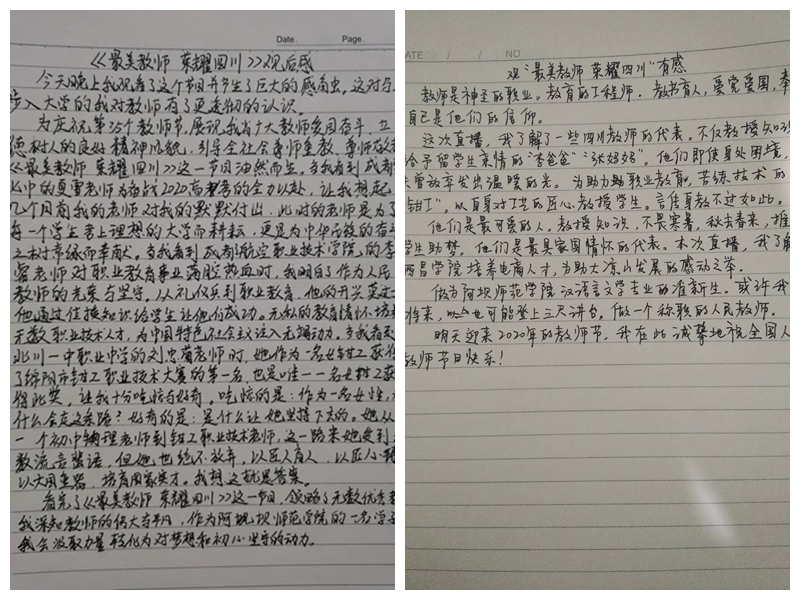 Date.
Page.
《最美教师 荣耀四川》观后感
今天晚上我观看了这个节目并产生了巨大的感触。这对于
步入大学的我对教师有了更透彻的认识。
为庆祝第35个教师节,展现我省广大教师爱国奋斗、立
德树人的良好精神风貌,引导全社会尊师重教、尊师
《最美教师 荣耀四川》这一节目油然而生。当我看到成都
七中的夏雪老师为备战2020高考的全力以赴,让我想起
几个月前我的老师对我的默默付出,此时的老师是为了
每一个学生考上理想的大学而耕耘,更是为中华民族的
而奉献。当我看到成都航空职业技术学院的李
老师对职业教育事业满腔热血时,我明白了作为人民
教师的光荣与坚守。从礼仪兵到职业教育,他的
他通过传授知识给学生让他们成功。无私的教育情怀培
无数职业技术人才,为中国特色社会主义注入无穷动力。当我看到
北川一中职业中学的刘忠 老师时,她作为一名女钳工获
了绵阳市钳工职业技术大赛的第一名,也是唯一一名女钳工获
得此奖,让我十分吃惊与好奇。吃惊的是:作为一名女性,
什么会走这条路?好奇的是:是什么让她坚持下去的。她从
一个初中物理老师到钳工职业技术老师,这一路来她受到
数流言蜚语,但她也绝不放弃,以匠人育人,以匠心
以大国重器,培育国家英才。我想这就是答案。
看完了《最美教师 荣耀四川》这一节目,领略了无数优秀
我深知教师的伟大与平凡,作为阿坝师范学院的一名学
我会汲取力量转化为对梦想和初心坚守的动力。
DATE / / NO
观“最美教师 荣耀四川”有感
教师是神圣的职业。教育的工程师。教书育人,爱党爱国,奉
自己是他们的信仰。
这次直播,我了解了一些四川教师的代表。不仅教授知识
给予留学生亲情的“李爸爸”“张妈妈”。他们即使身处困境,
曾放弃发出温暖的光。为助力职业教育,苦练技术的
钳工”,以自身对工艺的匠心,教授学生。言传身教不过如此。
他们是最可爱的人,教授知识,不畏寒暑,秋去春来,
学生助梦。他们是最具家国情怀的代表。本次直播,我了解
西昌学院培养电商人才,为助大凉山发展的感动之举。
做为阿坝师范学院汉语言文学专业的准新生。或许我
将来,也可能登上三尺讲台,做一个称职的人民教师。
明天迎来2020年的教师节,我在此诚挚地祝全国人
教师节日快乐!